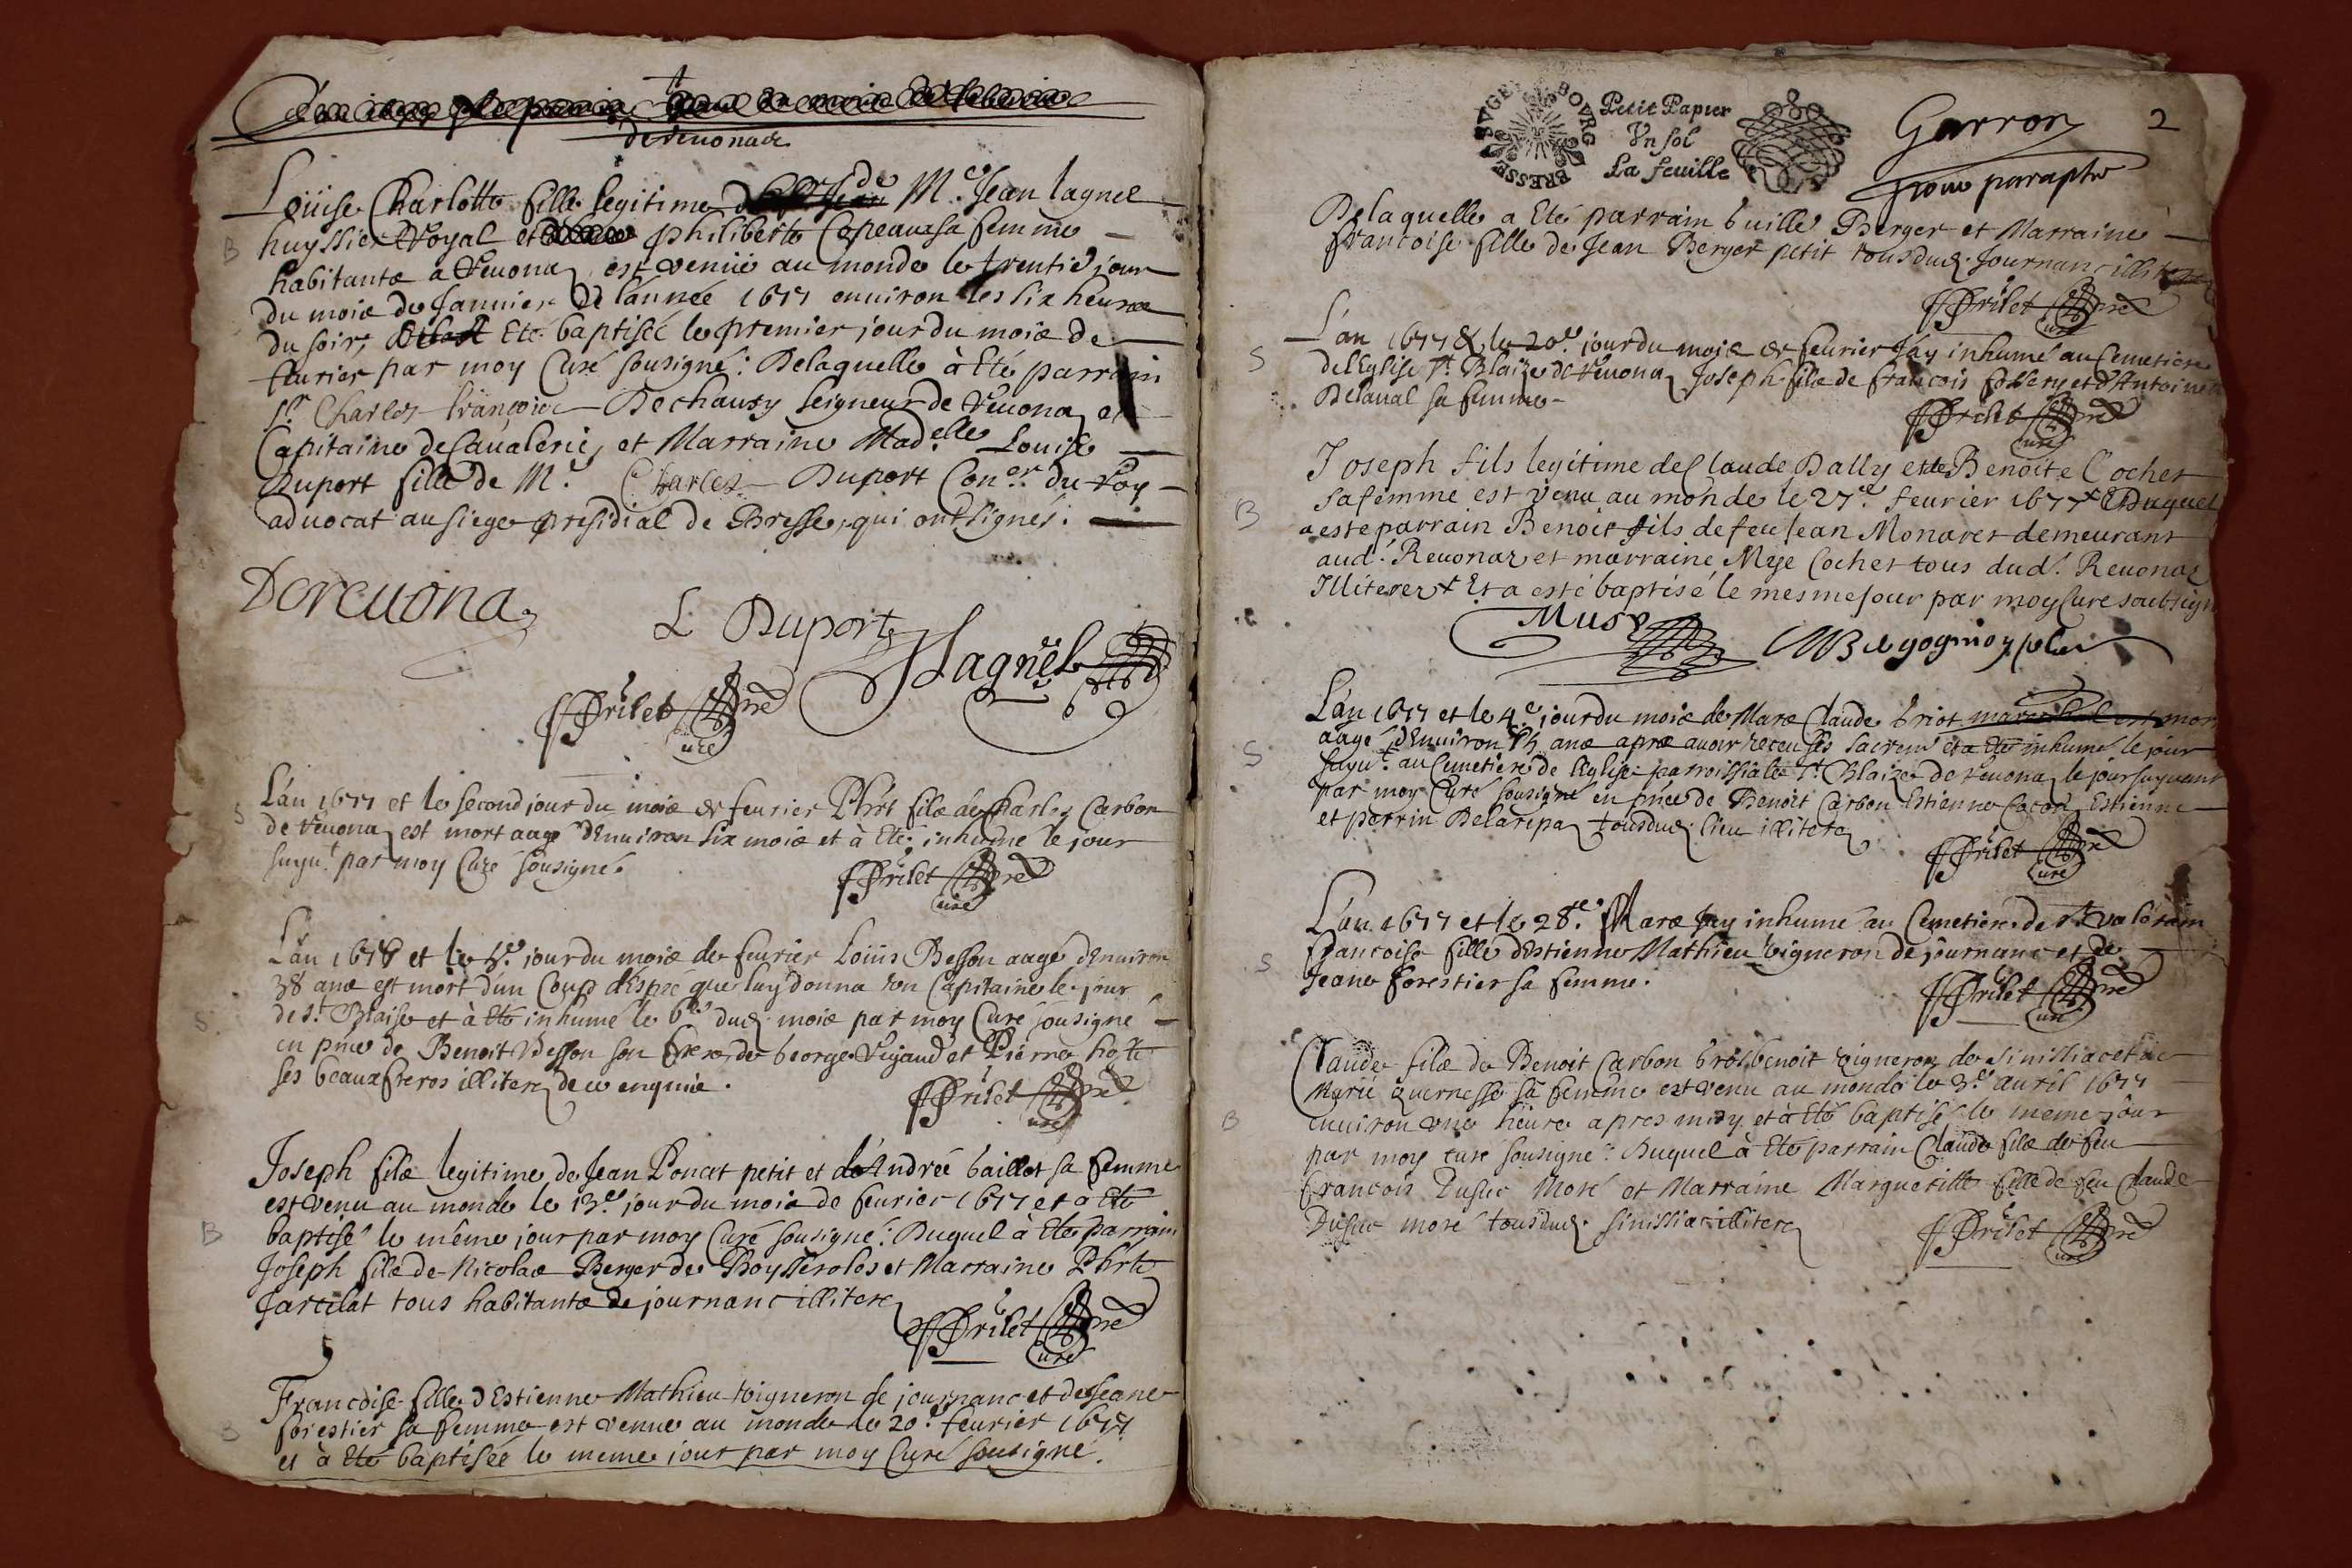 de reuonaz
Loüise Charlotte fille legitime de Me. Jean lagnel
huyssier Royal et philiberte Copeaux sa femme
habitants a Reuonaz est venüe au monde le trentie jour
du mois de Januier de l'année 1677 enuiron les six heures
du soir, Eté baptisée le premier jour du mois de
feurier par moy Curé sousigné: De laquelle à Eté parrain
Sr. Charles françois Dechauzy Seigneur de Reuonaz et
Capitaine de Caualerie, et Marraine Madelle Louise
Duport fille de Mr. Charles Duport Coner. du Roy
aduocat au siege presidial de Bresse, qui ont signés.
Dereuonaz
L Duport
Lagnel
Prilet Curé
L'an 1677 et le second jour du mois de feurier Phrt fils de Charles Carbon
de Reuonaz est mort aagé d'Enuiron six mois et à Eté inhumé le jour
suyut. par moy Curé sousigné.
Prilet Curé
L'an 1677 et le 5e. jour du mois de feurier Loüis Besson aagé d'Enuiron
38 ans est mort d'un Coup d'éspée que luy donna son Capitaine le jour
de St. Blaise et à Eté inhumé le 6e dud. mois par moy Curé sousigné
en pnce de Benoit Besson son frere, de George Rigaud et Pierre hoste
ses beaux freres illiterez de ce enquis.
Prilet Curé
B
Joseph fils legitime de Jean Poncet petit et de Andreé Gaillot sa femme
est venu au monde le 13e. jour du mois de feurier 1677 et a Eté
baptisé le même jour par moy Curé sousigné: Duquel à Eté parrain
Joseph fils de Nicolas Berger de et Marraine Phrte
Jarcelat tous habitants de journanc illiterez
Prilet Curé
Francoise fille d'Estienne Mathieu vigneron de journanc et de Jeane
forestier sa femme est venue au monde le 20e. feurier 1677
et à Eté baptisée le meme jour par moy Curé sousigné.
BRESSE BVGEY BOVRG
Petit Papier
Vn sol
La feuille
Garron
pour paraphe
2
De laquelle a Eté parrain Guille Berger et Marraine
francoise fille de Jean Berger petit tous dud. Journanc illiterez
Prilet Curé
S
L'an 1677 & le 20e. jour du mois de feurier J'ay inhumé au Cemetiere
de l'Eglise St. Blaize de Reuonaz Joseph fils de francois et d'Antoinete
Delaual sa femme
Prilet Curé
B
Joseph fils legitime de Claude Dally et de Benoite Cochet
sa femme est venu au monde le 27e. feurier 1677 Duquel
a este parrain Benoit fils de feu Jean Monaret demeurant
aud. Reuonaz et marraine Mye Cochet tous dud. Reuonaz
Illiterez Et a esté baptisé le mesme jour par moy Curé soubsigné
Musy
S
L'an 1677 et le 4e. jour du mois de Mars Claude briot
aagé d'Enuiron ans apres auoir receu ses sacremts et a Eté inhumé le jour
suyut. au Cemetiere de l'Eglise parroissiale St. Blaize de Reuonaz le jour suyuant
par moy Curé sousigné en pnce de Benoit Carbon Estienne Estienne
et perrin Delaripaz tous dud. lieu illiterez
Prilet Curé
S
L'an 1677 et le 28e. Mars J'ay inhumé au Cemetiere de St. Valerain
francoise fille d'Estienne Mathieu vigneron de journanc et de
Jeane forestier sa femme.
Prilet Curé
B
Claude fils de Benoit Carbon Grosbenoit vigneron de Sinissiac et de
Marie Guernesse sa femme est venu au monde le 3e auril 1677
enuiron une heure apres midy et à Eté baptisé le meme jour
par moy curé sousigné: Duquel à Eté parrain Claude fils de feu
francois Dusuc Moré et Marraine Margueritte fille de feu Claude
Dusuc moré tous dud. Sinissiac illiterez
Prilet Curé